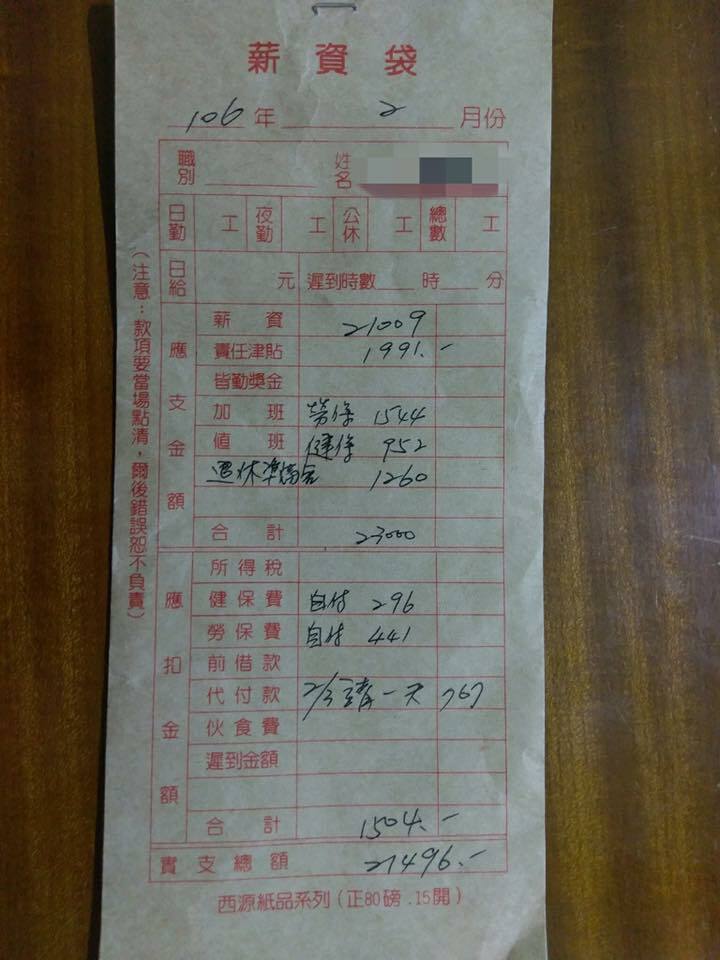 薪資袋
106年2月份
職別 姓名
日勤 工 夜勤 工 公休 工 總數 工
日給 元 遲到時數 時 分
應支金額
薪資 21009
責任津貼 1991.-
皆勤獎金
加班 勞保 1544
值班 健保 952
退休準備金 1260
合計 23000
應扣金額
所得稅
健保費 自付 296
勞保費 自付 441
前借款
代付款 2/3 請一天 767
伙食費
遲到金額
合計 1504.-
實支總額 21496.-
(注意：款項要當場點清，爾後錯誤恕不負責)
西源紙品系列(正80磅.15開)